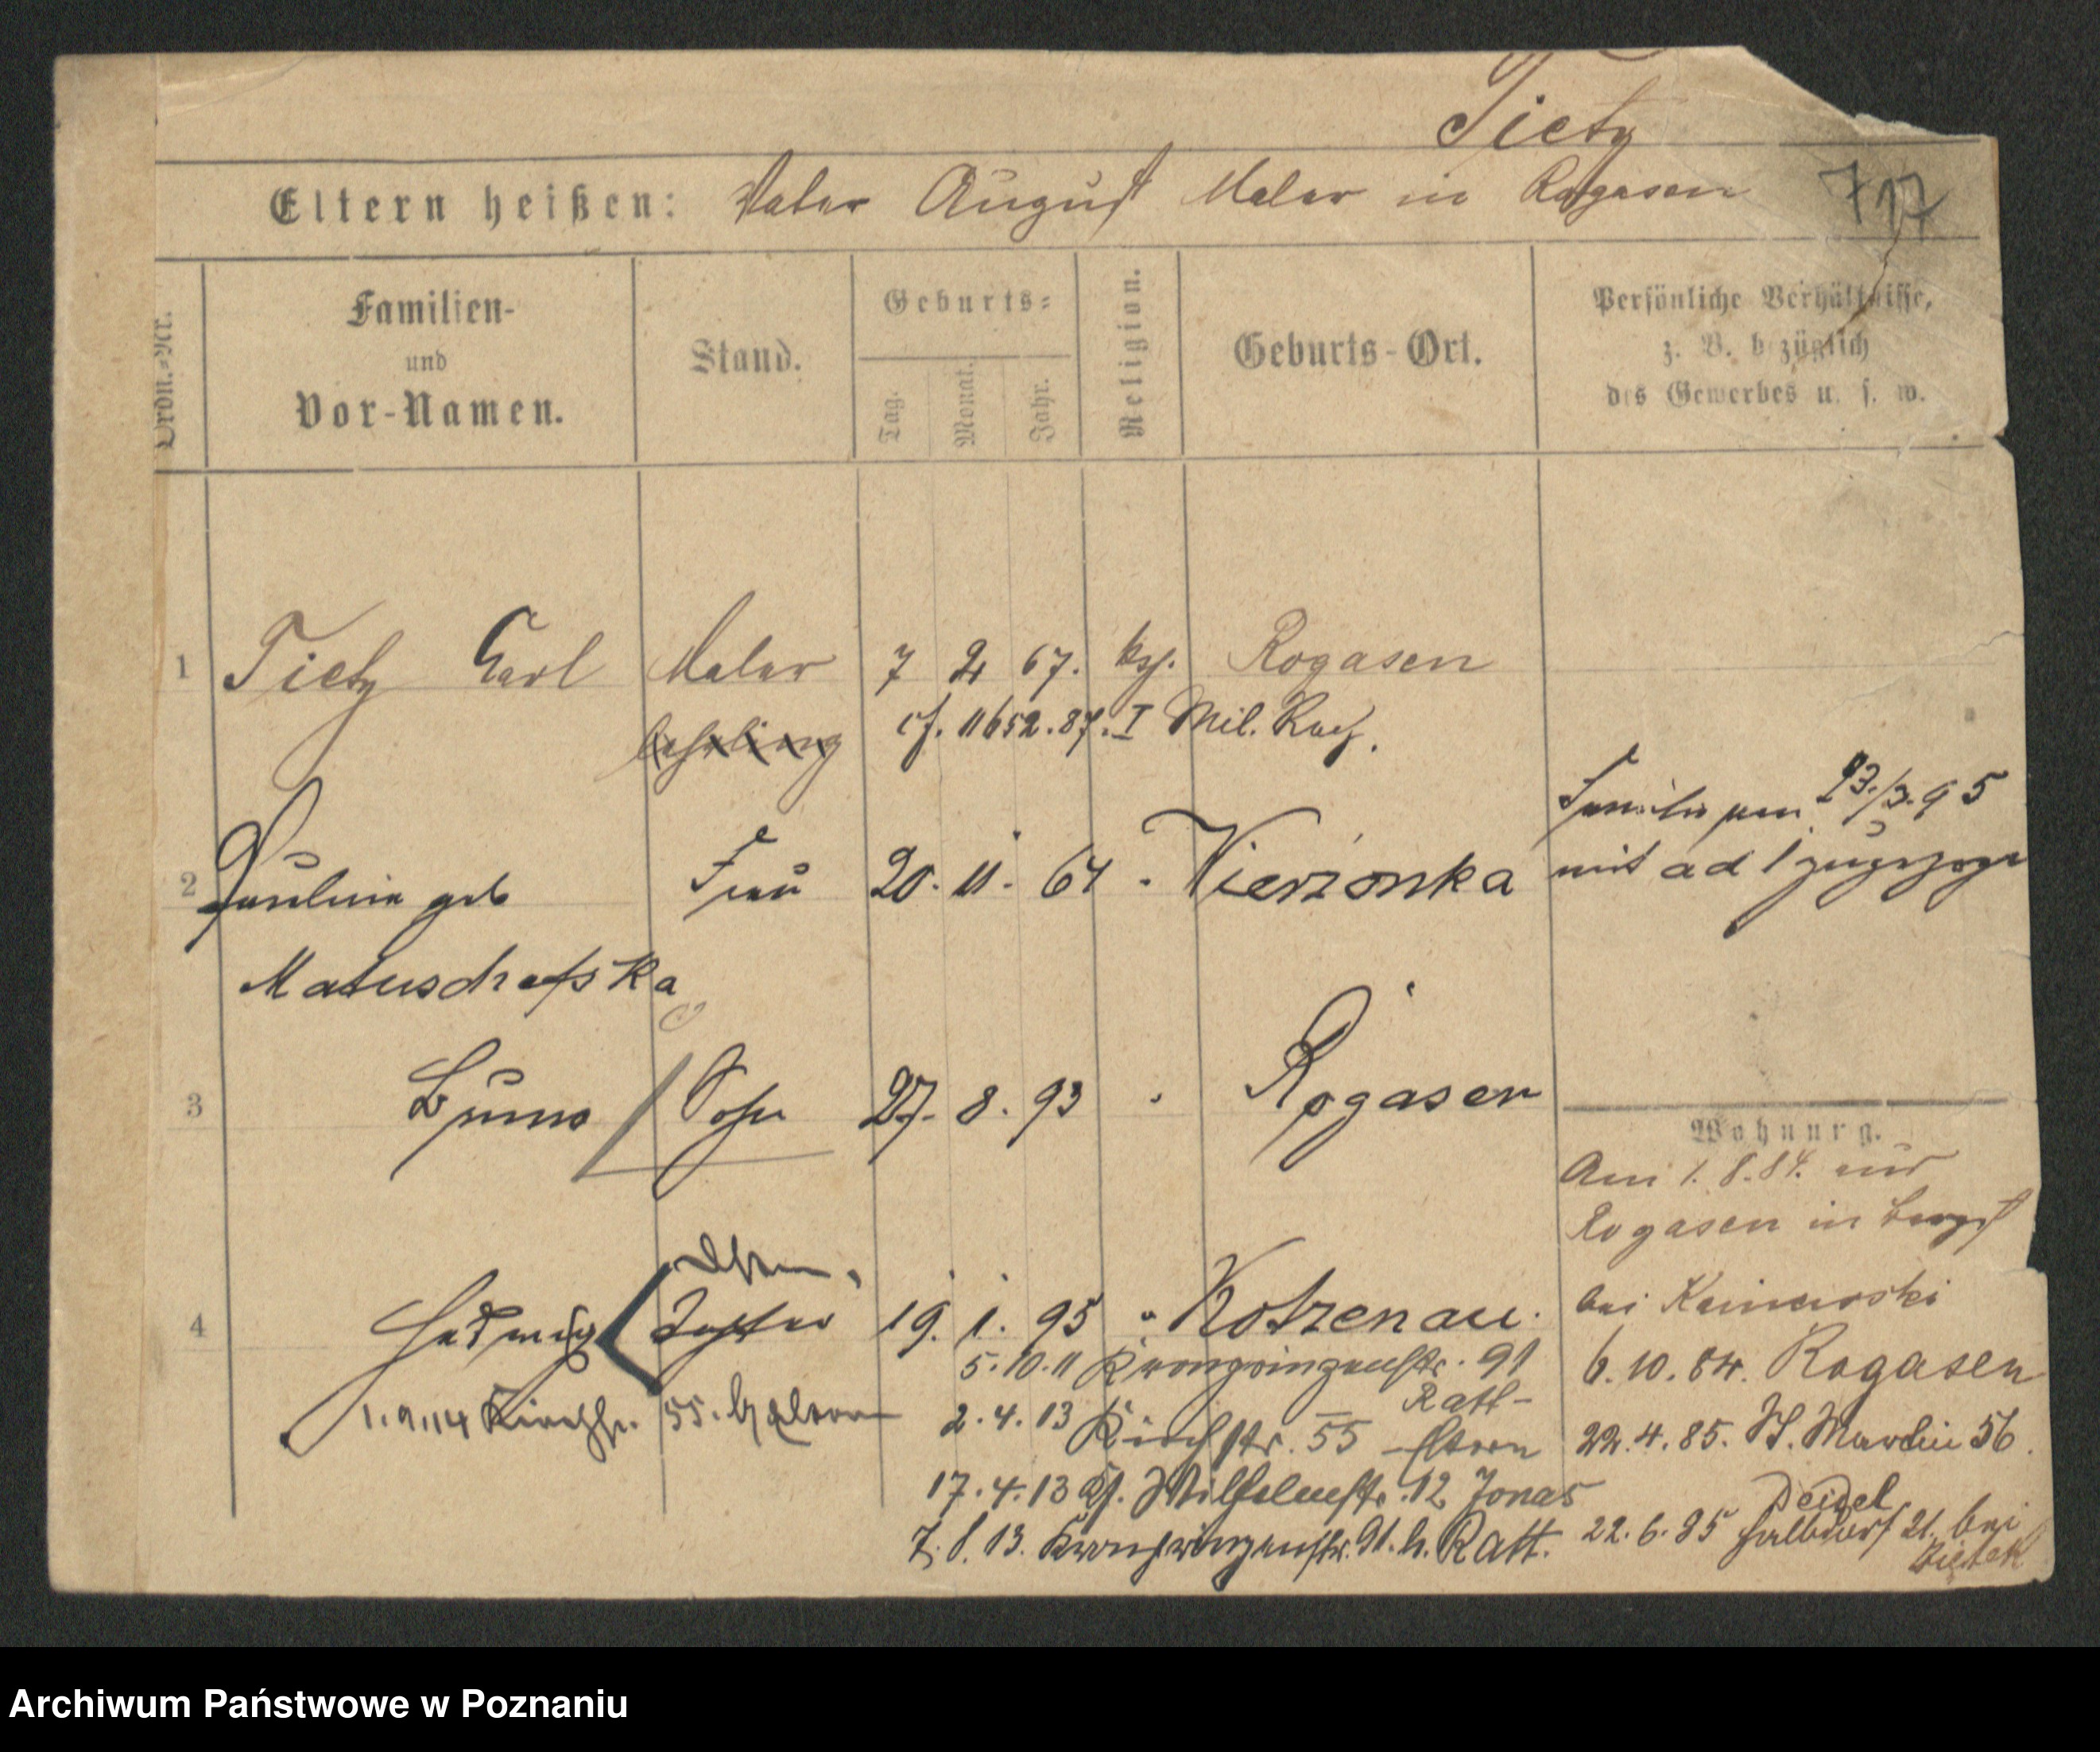 Tietz
Eltern heißen: Vater August Maler in Rogasen
717
Ordn.-Nr.
Familien-
und
Vor-Namen.
Stand.
Geburts-
Tag.
Monat.
Jahr.
Religion.
Geburts-Ort.
Persönliche Verhältnisse,
z. B. bezüglich
des Gewerbes u. s. w.
1 Tietz Carl Maler 7 2 67. Rogasen
lehrling cf. 11652.87. I Mil.
Familie am 23./3. 95
2 Pauline geb Frau 20. 11. 64 Wierzonka mit ad 1 zugezogen
Matuschefska
3 Bruno Sohn 27. 8. 93 Rogasen
Wohnung.
Am 1. 8. 84. aus
Rogasen in
Eltern,
4 Hedwig Tochter 19. 1. 95 Kotzenau. bei
5.10.11 Kronprinzenstr. 91 6. 10. 84. Rogasen
Ratt-
1.9.14 Kirchstr. 55. b. Eltern 2.4.13 Kirchstr. 55 Eltern 22. 4. 85. St. Martin 56.
17.4.13 Wilhelmstr. 12 Jonas
7.8.13. Kronprinzenstr. 91. b. Ratt. 22. 6. 85 Halbdorf 21. bei
Archiwum Państwowe w Poznaniu